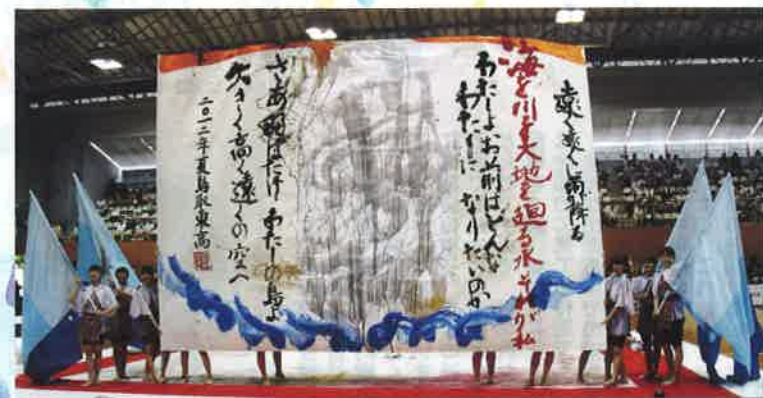 遠く遠くに雨が降る
海を川を大地を廻る水それが私
わたしよお前はどんな
わたしに なりたいのか
さあ羽ばたけ わたしの鳥よ
大きく高く遠くの空へ
二〇一二年夏鳥取東高